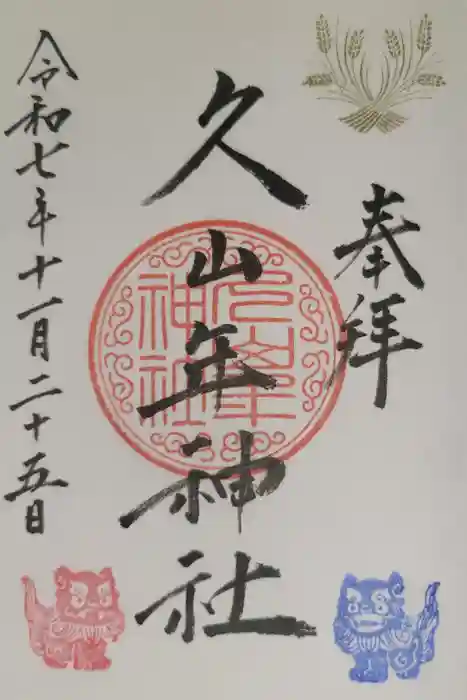 奉拝
久山年神社
久山年神社
令和七年十一月二十五日